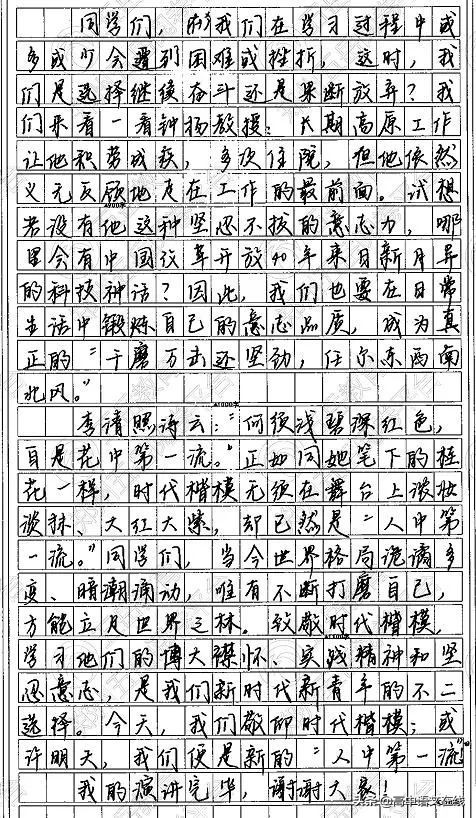 同学们，你我们在学习过程中或
多或少会遇到困难或挫折，这时，我
们是选择继续奋斗还是果断放弃？我
们来看一看钟扬教授：长期高原工作
让他积劳成疾，多次住院，但他依然
义无反顾地走在工作的最前面。试想
若没有他这种坚忍不拔的意志力，哪
里会有中国改革开放40年来日新月异
的科技神话？因此，我们也要在日常
生活中锻炼自己的意志品质，成为真
正的“千磨万击还坚劲，任尔东西南
北风。”
李清照诗云：“何须浅碧深红色，
自是花中第一流。”正如同她笔下的桂
花一样，时代楷模无须在舞台上浓妆
淡抹、大红大紫，却已然是“人中第
一流。”同学们，当今世界格局诡谲多
变、暗潮涌动，唯有不断打磨自己，
方能立足世界之林。致敬时代楷模，
学习他们的博大襟怀、实践精神和坚
忍意志，是我们新时代新青年的不二
选择。今天，我们敬仰时代楷模；或
许明天，我们便是新的“人中第一流”。
我的演讲完毕，谢谢大家！
头条@高中语文在线